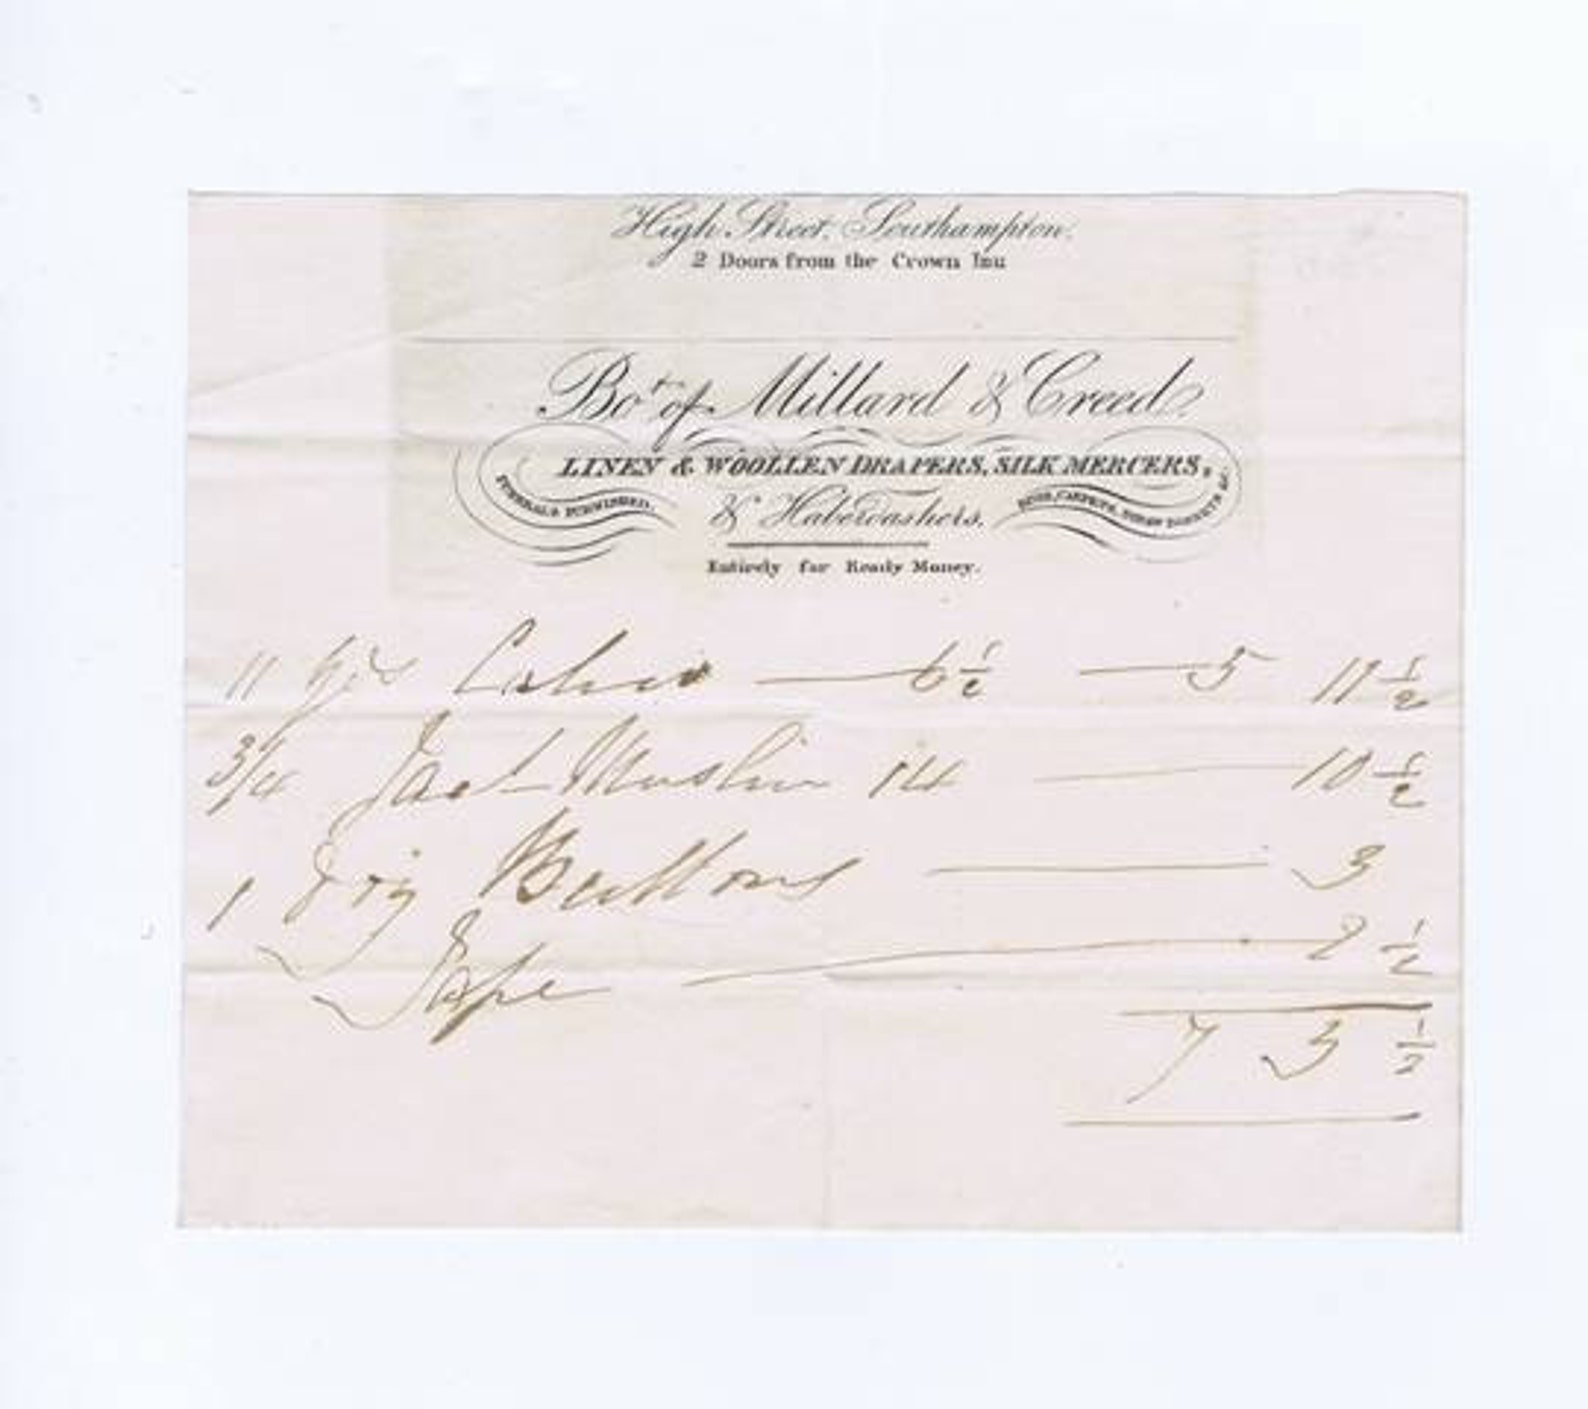 High Street, Southampton.
2 Doors from the Crown Inn
Bot. of Millard & Creed
LINEN & WOOLLEN DRAPERS, SILK MERCERS,
FUNERALS FURNISHED.
& Haberdashers.
RUGS, CARPETS, STRAW BONNETS &c.
Entirely for Ready Money.
11 yds Calico 6 1/2 5 11 1/2
3/4 Jact Muslin 14 10 1/2
1 Doz Buttons 3
Tape 2 1/2
7 3 1/2